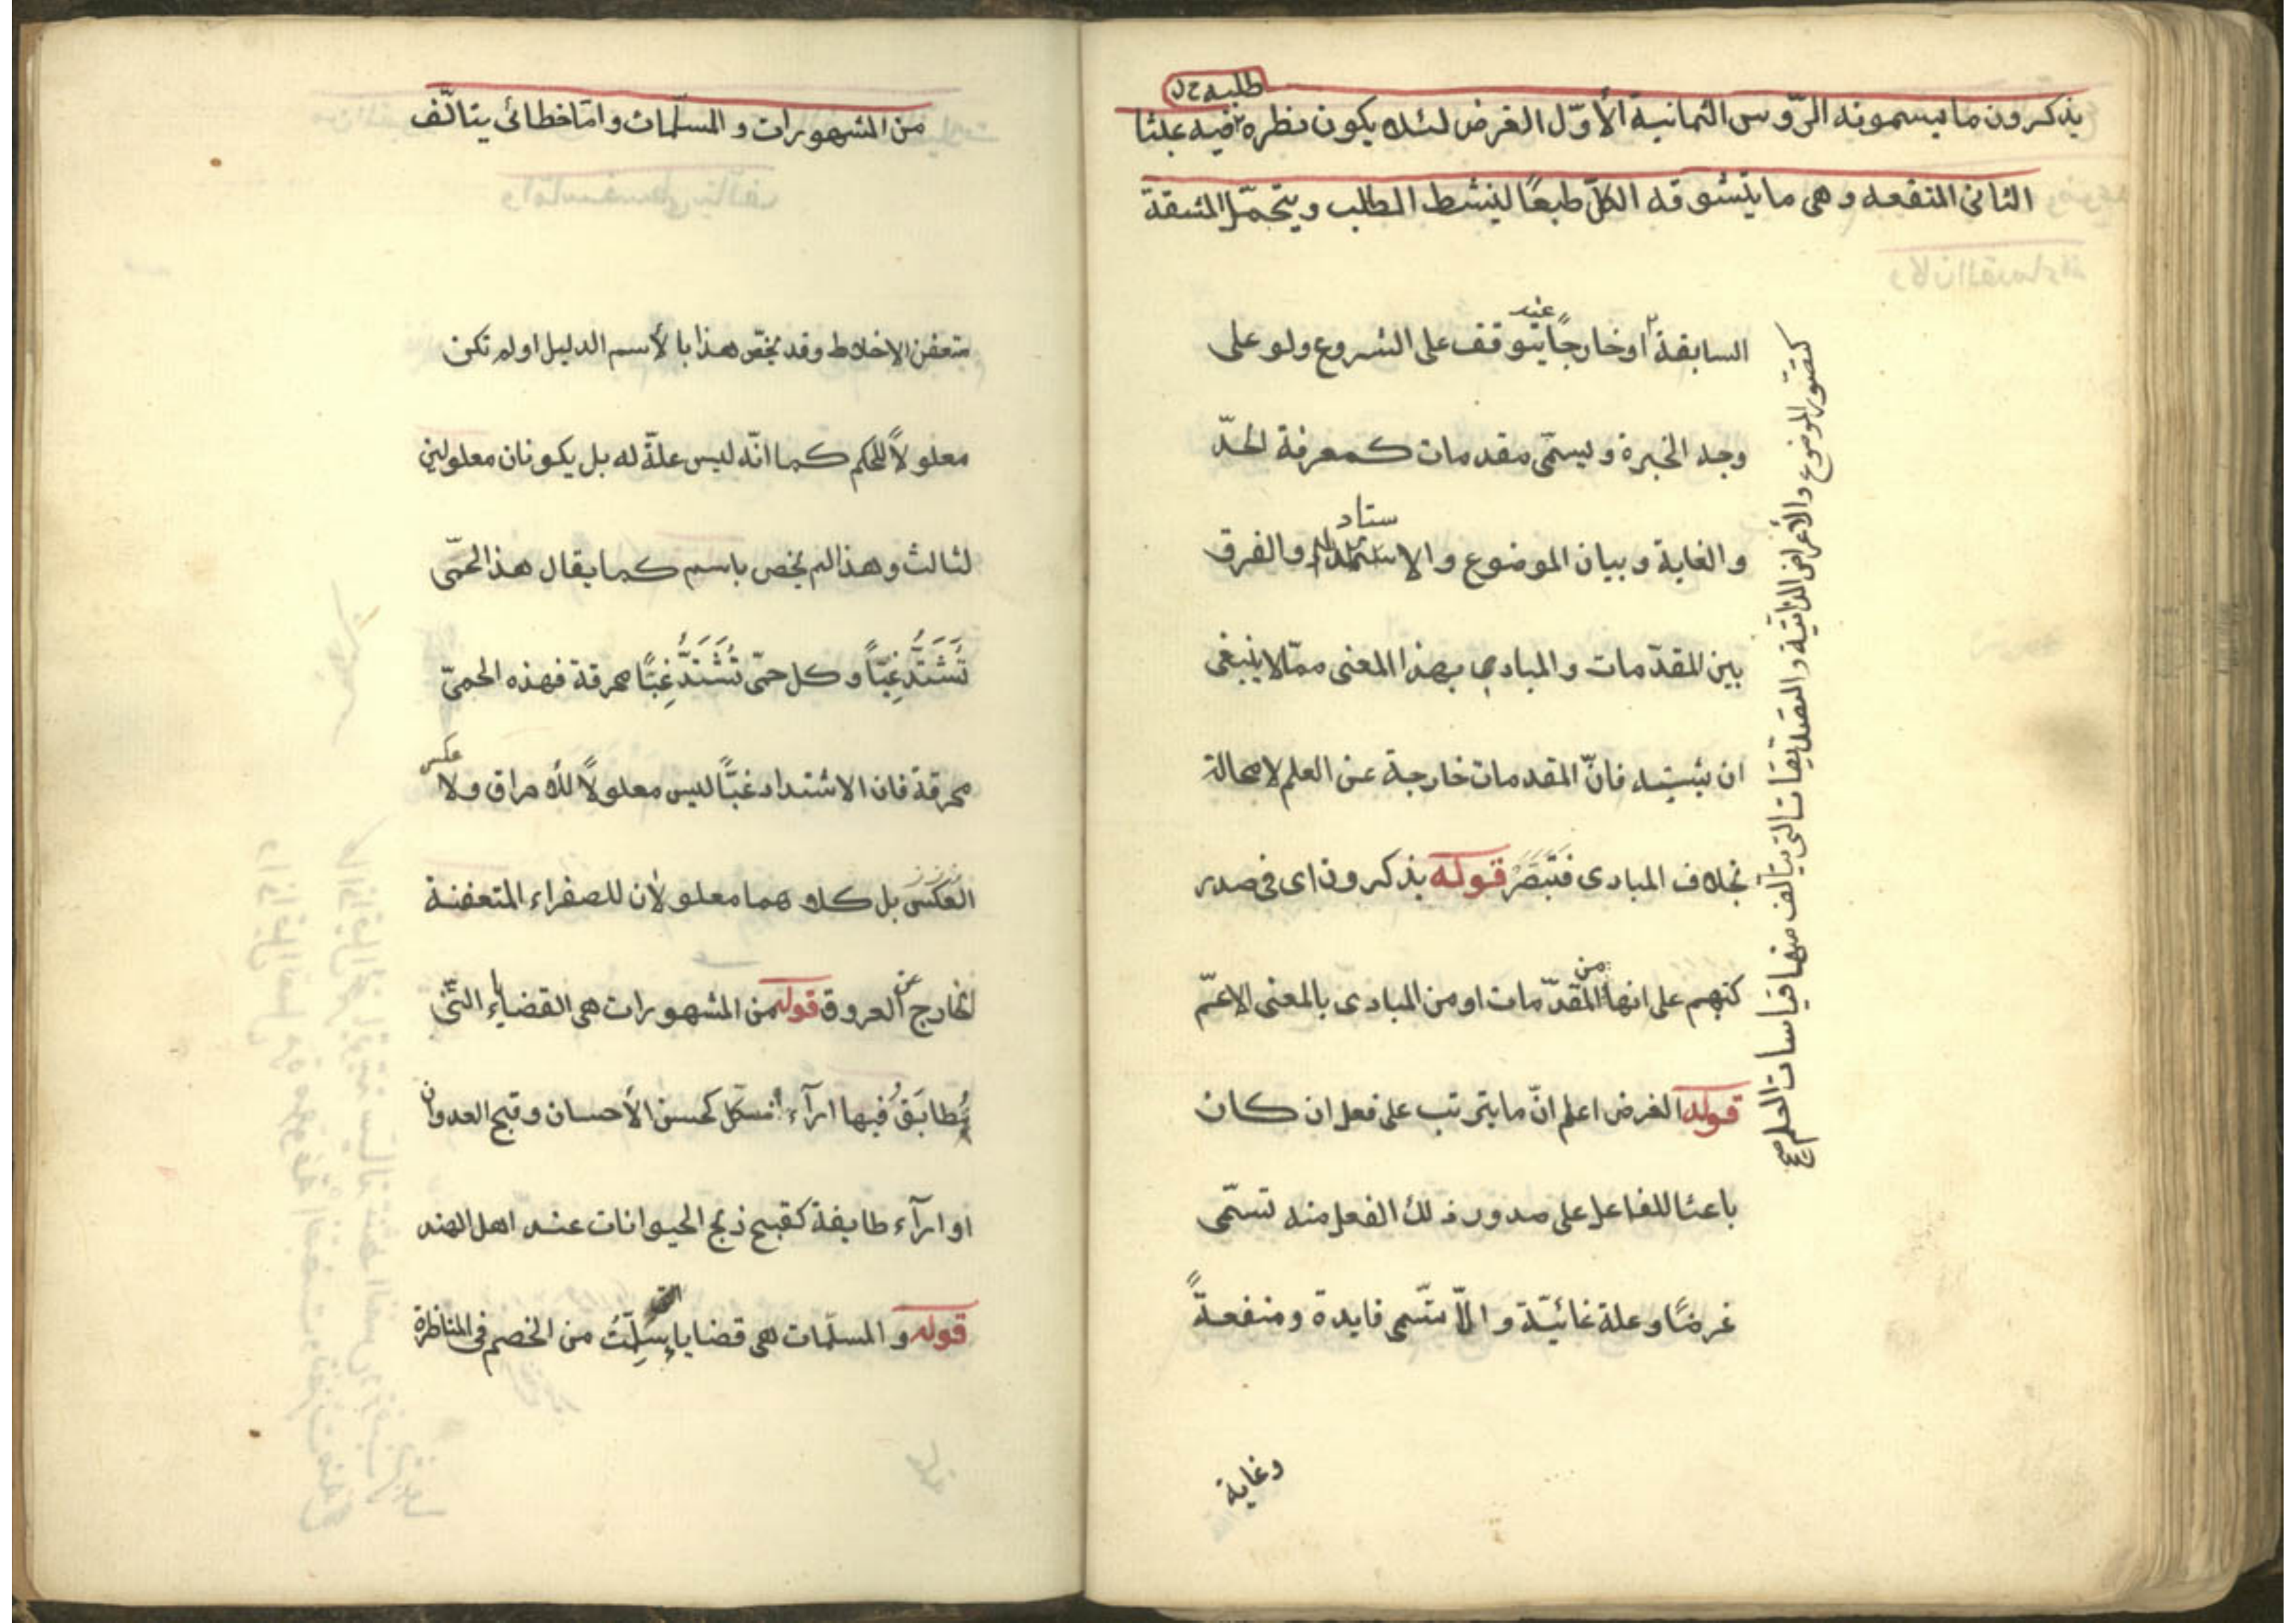 طلبه ح ل
يذكرون ما يسمونه الرّؤس الثمانية الأوّل الغرض لئلا يكون نظره فيه عبثا
الثانى المنفعه وهى ما يتشوقه الكلّ طبعًا لينشط الطالب ويتحمّل المشقة
السابقة او خارجًا يتوقف عليه الشروع ولو على
وجه الخبرة ويسمّى مقدمات كمعرفة الحدّ
ستاد
والغاية وبيان الموضوع والاستمداد والفرق
بين المقدّمات والمبادى بهذا المعنى ممّا لا ينبغى
ان يشتبه فانّ المقدمات خارجة عن العلم لا محالة
بخلاف المبادى فتبصّر قوله يذكرون اى فى صدر
كتبهم على انها من المقدّمات او من المبادى بالمعنى الاعمّ
قوله الغرض اعلم انّ ما يترتب على فعل ان كان
باعثا للفاعل على صدور ذلك الفعل منه تسمّى
غرضًا وعلة غائيّة والّا تسّمى فايدة ومنفعةً
وغاية
كتصوّر الموضوع والأعراض الذاتيّه والتصديقات التى يتألف منها قياسات العلم صح
من المشهورات والمسلّمات وامّا خطائى يتالّف
متعفن الاخلاط وقد يخصّ هذا بالأسم الدليل او لم تكن
معلولاً للحكم كما انّه ليس علّة له بل يكونان معلولين
لثالث وهذا لم يخص باسم كما يقال هذ الحمّى
تَشَتَدُّ غِبّاً وكل حمّى تَشْتَدُّ غِبًّا محرقة فهذه الحمىّ
محرقة فان الاشتداد غبّاً ليس معلولاً للأحراق ولا عكس
العكس بل كلاهما معلولان للصفراء المتعفنة
الخارج عن العروق قوله من المشهورات هى القضايا التّى
يُطابَقُ فيها ارآء الكل كحسن الأحسان وقبح العدوان
او ارآء طايفة كقبح ذبح الحيوانات عند اهل الهند
قوله والمسلّمات هى قضايا سُلِّمَتُ من الخصم فى المناظرة